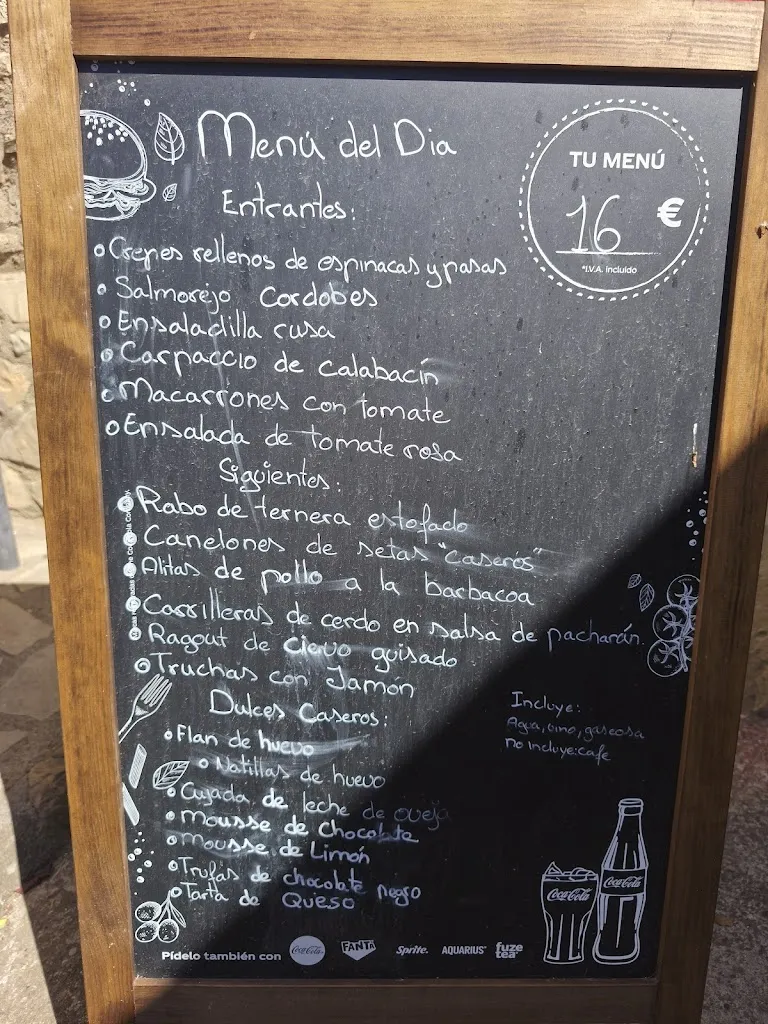 Menú del Dia
TU MENÚ
16 €
*I.V.A. incluido
Entrantes:
Crepes rellenos de espinacas y pasas
Salmorejo Cordobes
Ensaladilla rusa
Carpaccio de calabacín
Macarrones con tomate
Ensalada de tomate rosa
Sigüientes:
Rabo de ternera estofado
Canelones de setas "caseros"
Alitas de pollo a la barbacoa
Carrilleras de cerdo en salsa de pacharán
Ragout de cievo guisado
Truchas con Jamón
Dulces Caseros:
Flan de huevo
Natillas de huevo
Cuajada de leche de oveja
Mousse de Chocolate
Mousse de Limón
Trufas de chocolate negro
Tarta de Queso
Incluye:
Agua, vino, gaseosa
no Incluye: cafe
Coca-Cola
Coca-Cola
Pídelo también con Coca-Cola FANTA Sprite. AQUARIUS fuze tea